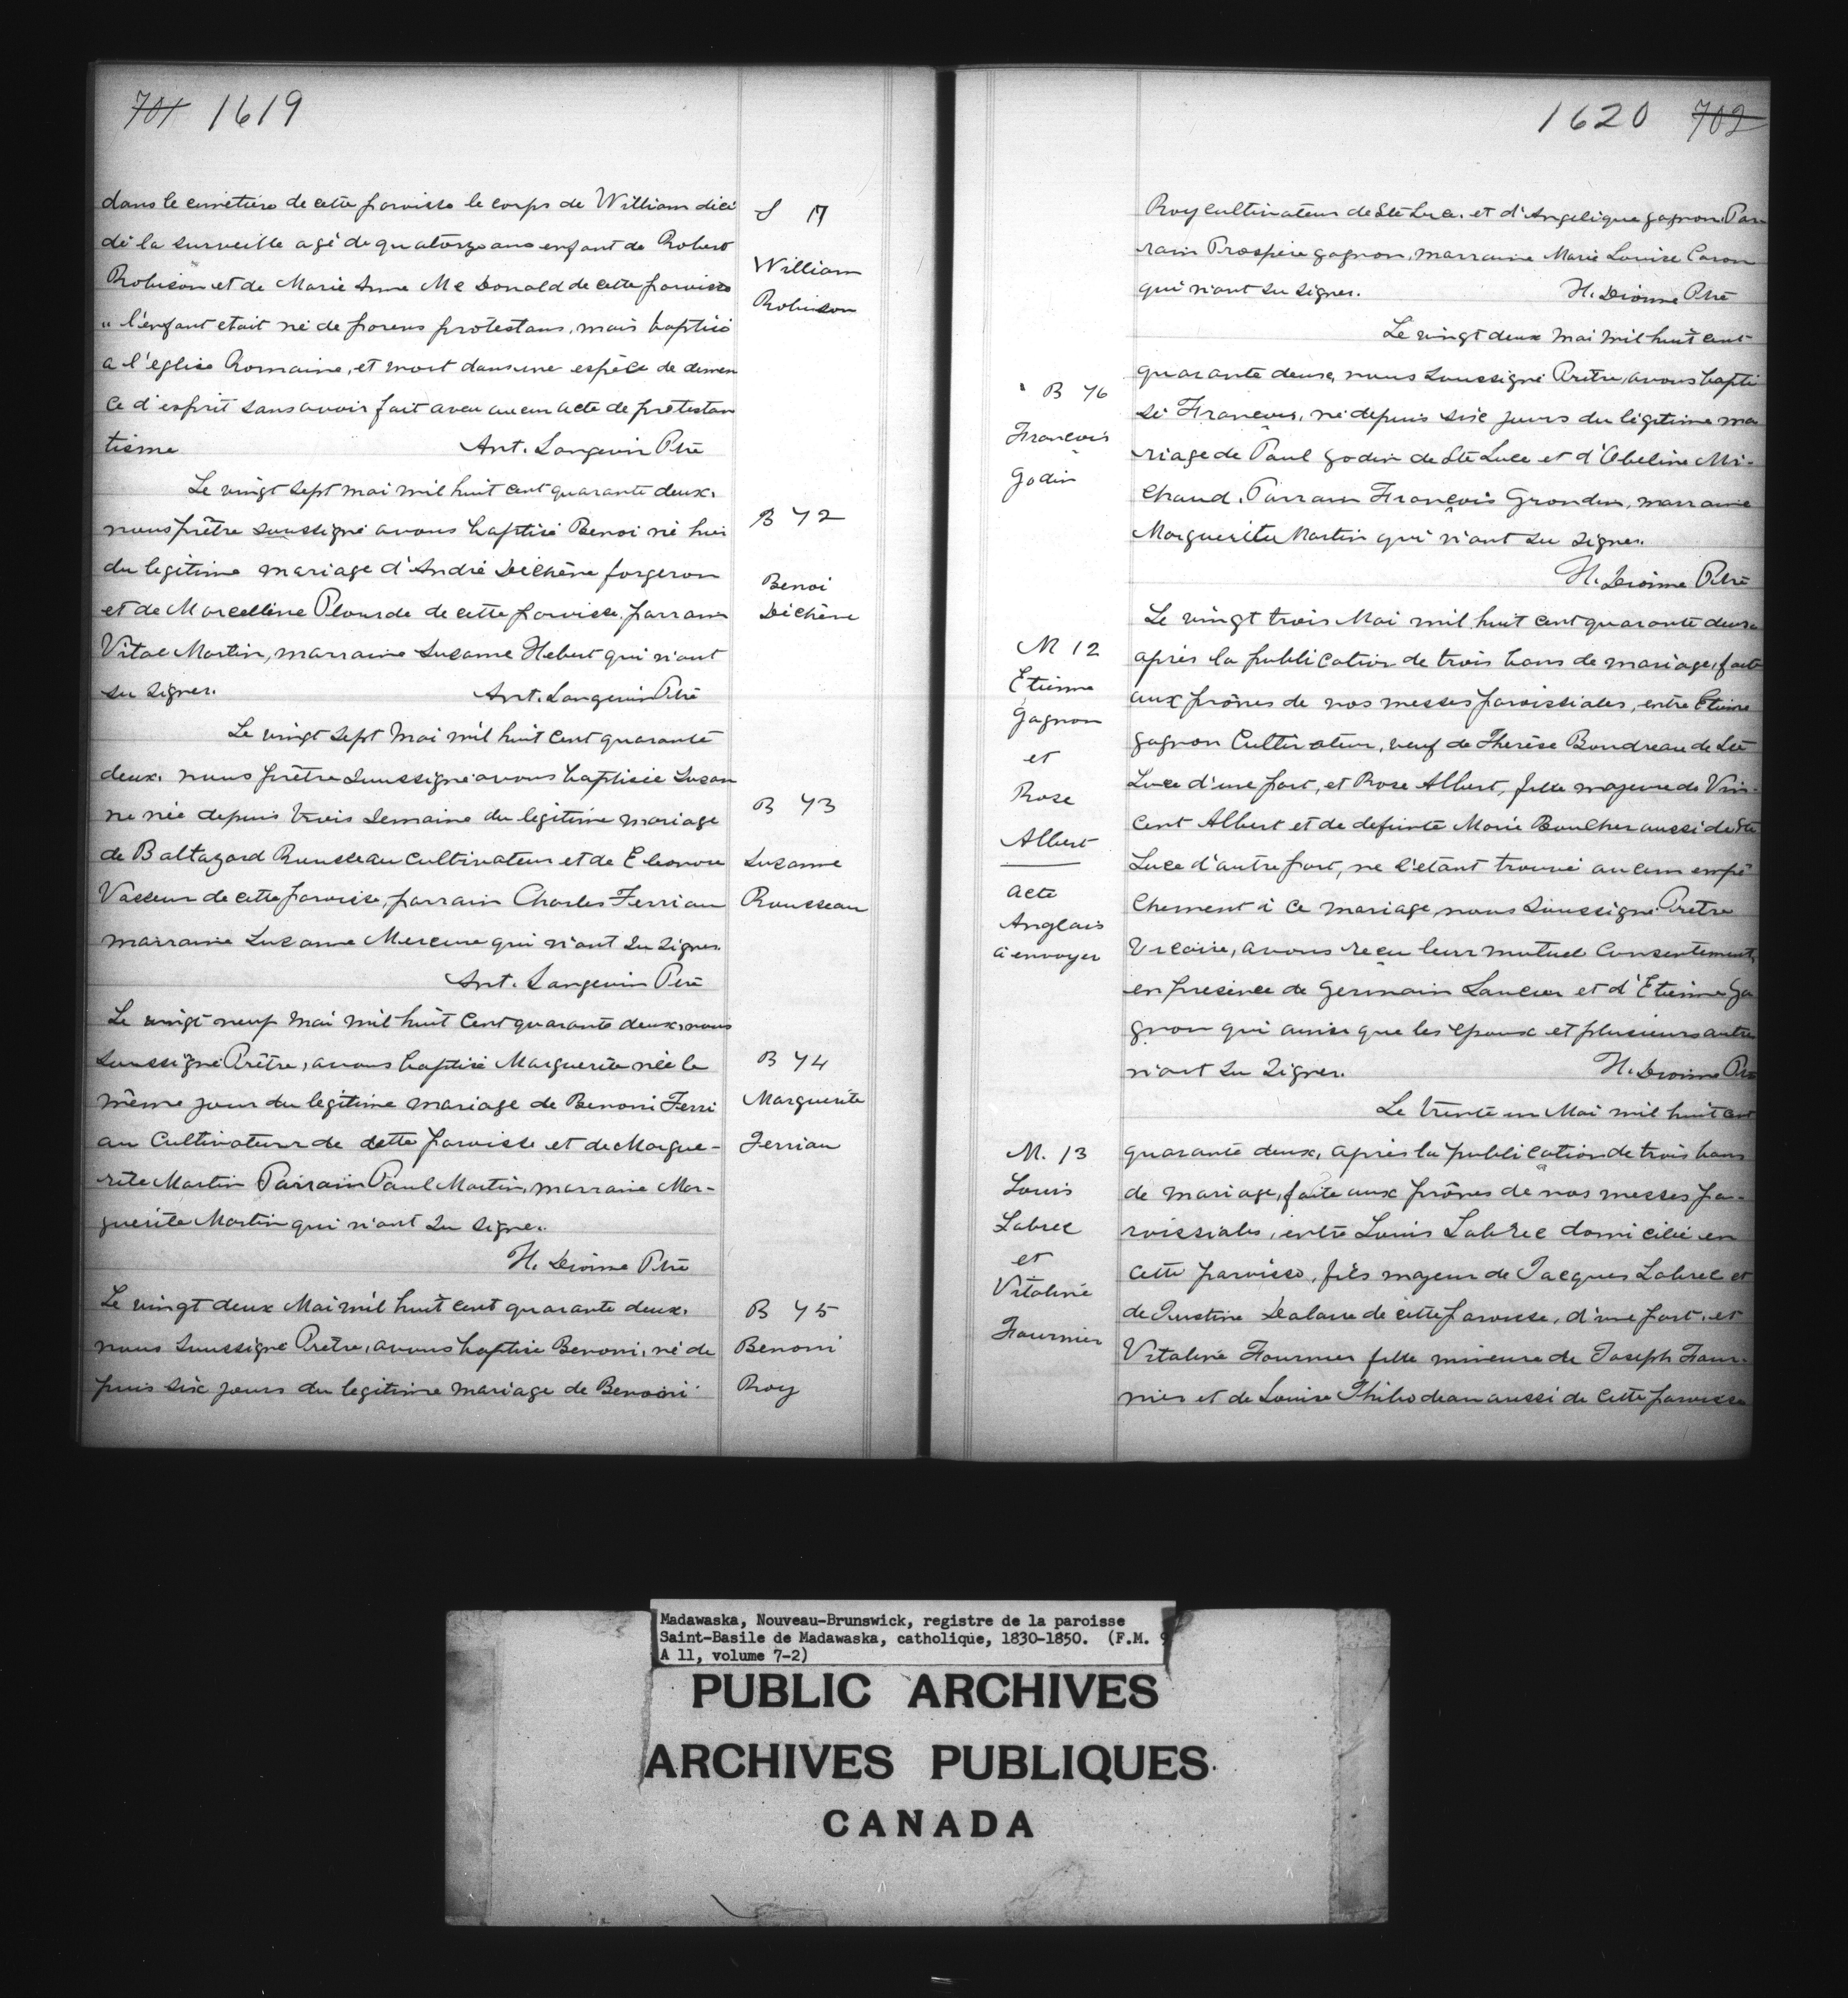 701 1619
dans le cimetière de cette paroisse le corps de William décé
dé la surveille agé de quatorze ans enfant de Robert
Robison et de Marie Anne Mc Donald de cette paroisse
" l'enfant etait né de parens protestans, mais baptisé
a l'eglise Romaine, et mort dans une espèce de demen
ce d'esprit sans avoir fait aveu aucun acte de protestan
tisme Ant. Langevin Ptre
S 17
William
Robinson
Le vingt sept mai mil huit cent quarante deux,
nous prêtre soussigné avons baptisé Benoi né hier
du legitime mariage d'André Déchêne forgeron
et de Marcelline Plourde de cette paroisse, parrain
Vital Martin, marraine Suzanne Hebert qui n'ont
su signer. Ant. Langevin Ptre
B 72
Benoi
Déchêne
Le vingt sept Mai mil huit cent quarante
deux, nous prêtre soussigné avons baptisée Suzan
ne née depuis trois semaine du legitime mariage
de Baltazard Rousseau cultivateur et de Eleonore
Vasseur de cette paroisse, parrain Charles Ferriau
marraine Suzanne Mercure qui n'ont su signer.
Ant. Langevin Ptre
B 73
Suzanne
Rousseau
Le vingt neuf Mai mil huit cent quarante deux, nous
soussigné Prêtre, avons baptisé Marguerite née le
même jour du legitime mariage de Benoni Ferri
au Cultivateur de cette paroisse et de Margue-
rite Martin Parrain Paul Martin, marraine Mar-
guerite Martin qui n'ont su signer.
H. Dionne Ptre
B 74
Marguerite
Ferriau
Le vingt deux Mai mil huit cent quarante deux,
nous soussigné Prêtre, avons baptisé Benoni, né de
puis six jours du legitime mariage de Benoni
B 75
Benoni
Roy
1620 702
Roy cultivateur de Ste Luce, et d'Angelique gagnon. Par
rain Prospère gagnon, marraine Marie Louise Caron
qui n'ont su signer. H. Dionne Ptre
Le vingt deux Mai mil huit cent
quarante deux, nous soussigné Prêtre, avons bapti
sé François, né depuis six jours du légitime ma
riage de Paul godin de Ste Luce et d'Obeline Mi-
chaud. Parrain François Grondin, marraine
Marguerite Martin qui n'ont su signer.
H. Dionne Ptre
B 76
François
godin
Le vingt trois Mai mil huit cent quarante deux
après la publication de trois bans de mariage, faite
aux prônes de nos messes paroissiales, entre Etienne
gagnon Cultivateur, veuf de Therèse Boudreau de Ste
Luce d'une part, et Rose Albert, fille majeure de Vin-
cent Albert et de defunte Marie Boucher aussi de Ste
Luce d'autre part, ne s'étant trouvé aucun empê
chement à ce mariage, nous soussigné Prêtre
Vicaire, avons reçu leur mutuel consentement,
en presence de Germain Saucier et d'Etienne Ga
gnon qui ainsi que les epoux et plusieurs autre
n'ont su signer. H. Dionne Ptre
M 12
Etienne
Gagnon
et
Rose
Albert
acte
Anglais
à envoyer
Le trente un Mai mil huit cent
quarante deux, après la publication de trois bans
de mariage, faite aux prônes de nos messes pa-
roissiales, entre Louis Labrec domicilié en
cette paroisse, fils majeur de Jacques Labrec et
de Justine Dalaire de cette paroisse, d'une part, et
Vitaline Fournier fille mineure de Joseph Four-
nier et de Louise Thibodeau aussi de cette paroisse
M. 13
Louis
Labrec
et
Vitaline
Fournier
Madawaska, Nouveau-Brunswick, registre de la paroisse
Saint-Basile de Madawaska, catholique, 1830-1850. (F.M. 9
A 11, volume 7-2)
PUBLIC ARCHIVES
ARCHIVES PUBLIQUES
CANADA